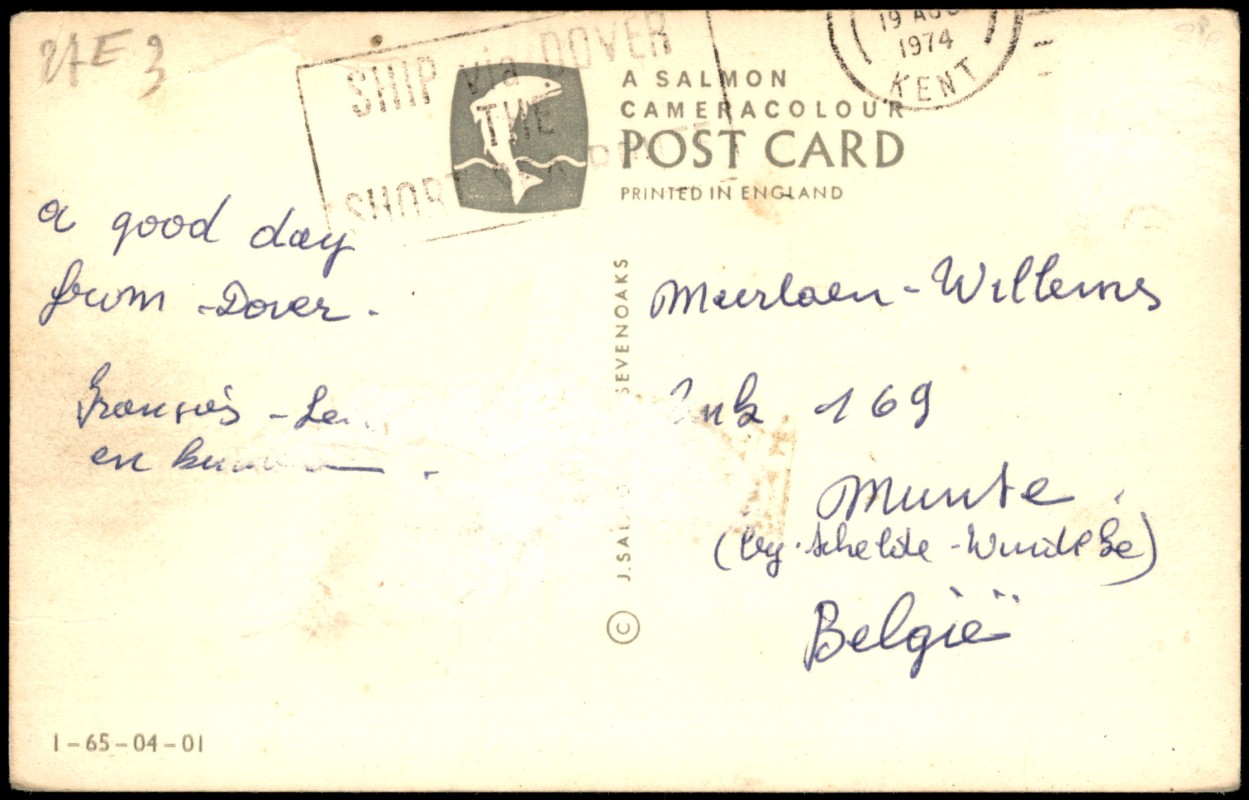 19 AUG
1974
KENT
SHIP via DOVER
THE
SHORT SEA
A SALMON
CAMERACOLOUR
POST CARD
PRINTED IN ENGLAND
a good day
from Dover.
en
SEVENOAKS
© J. SAL
Meerlaen - Willems
169
Munte.
(by Schelde -
België
1-65-04-01